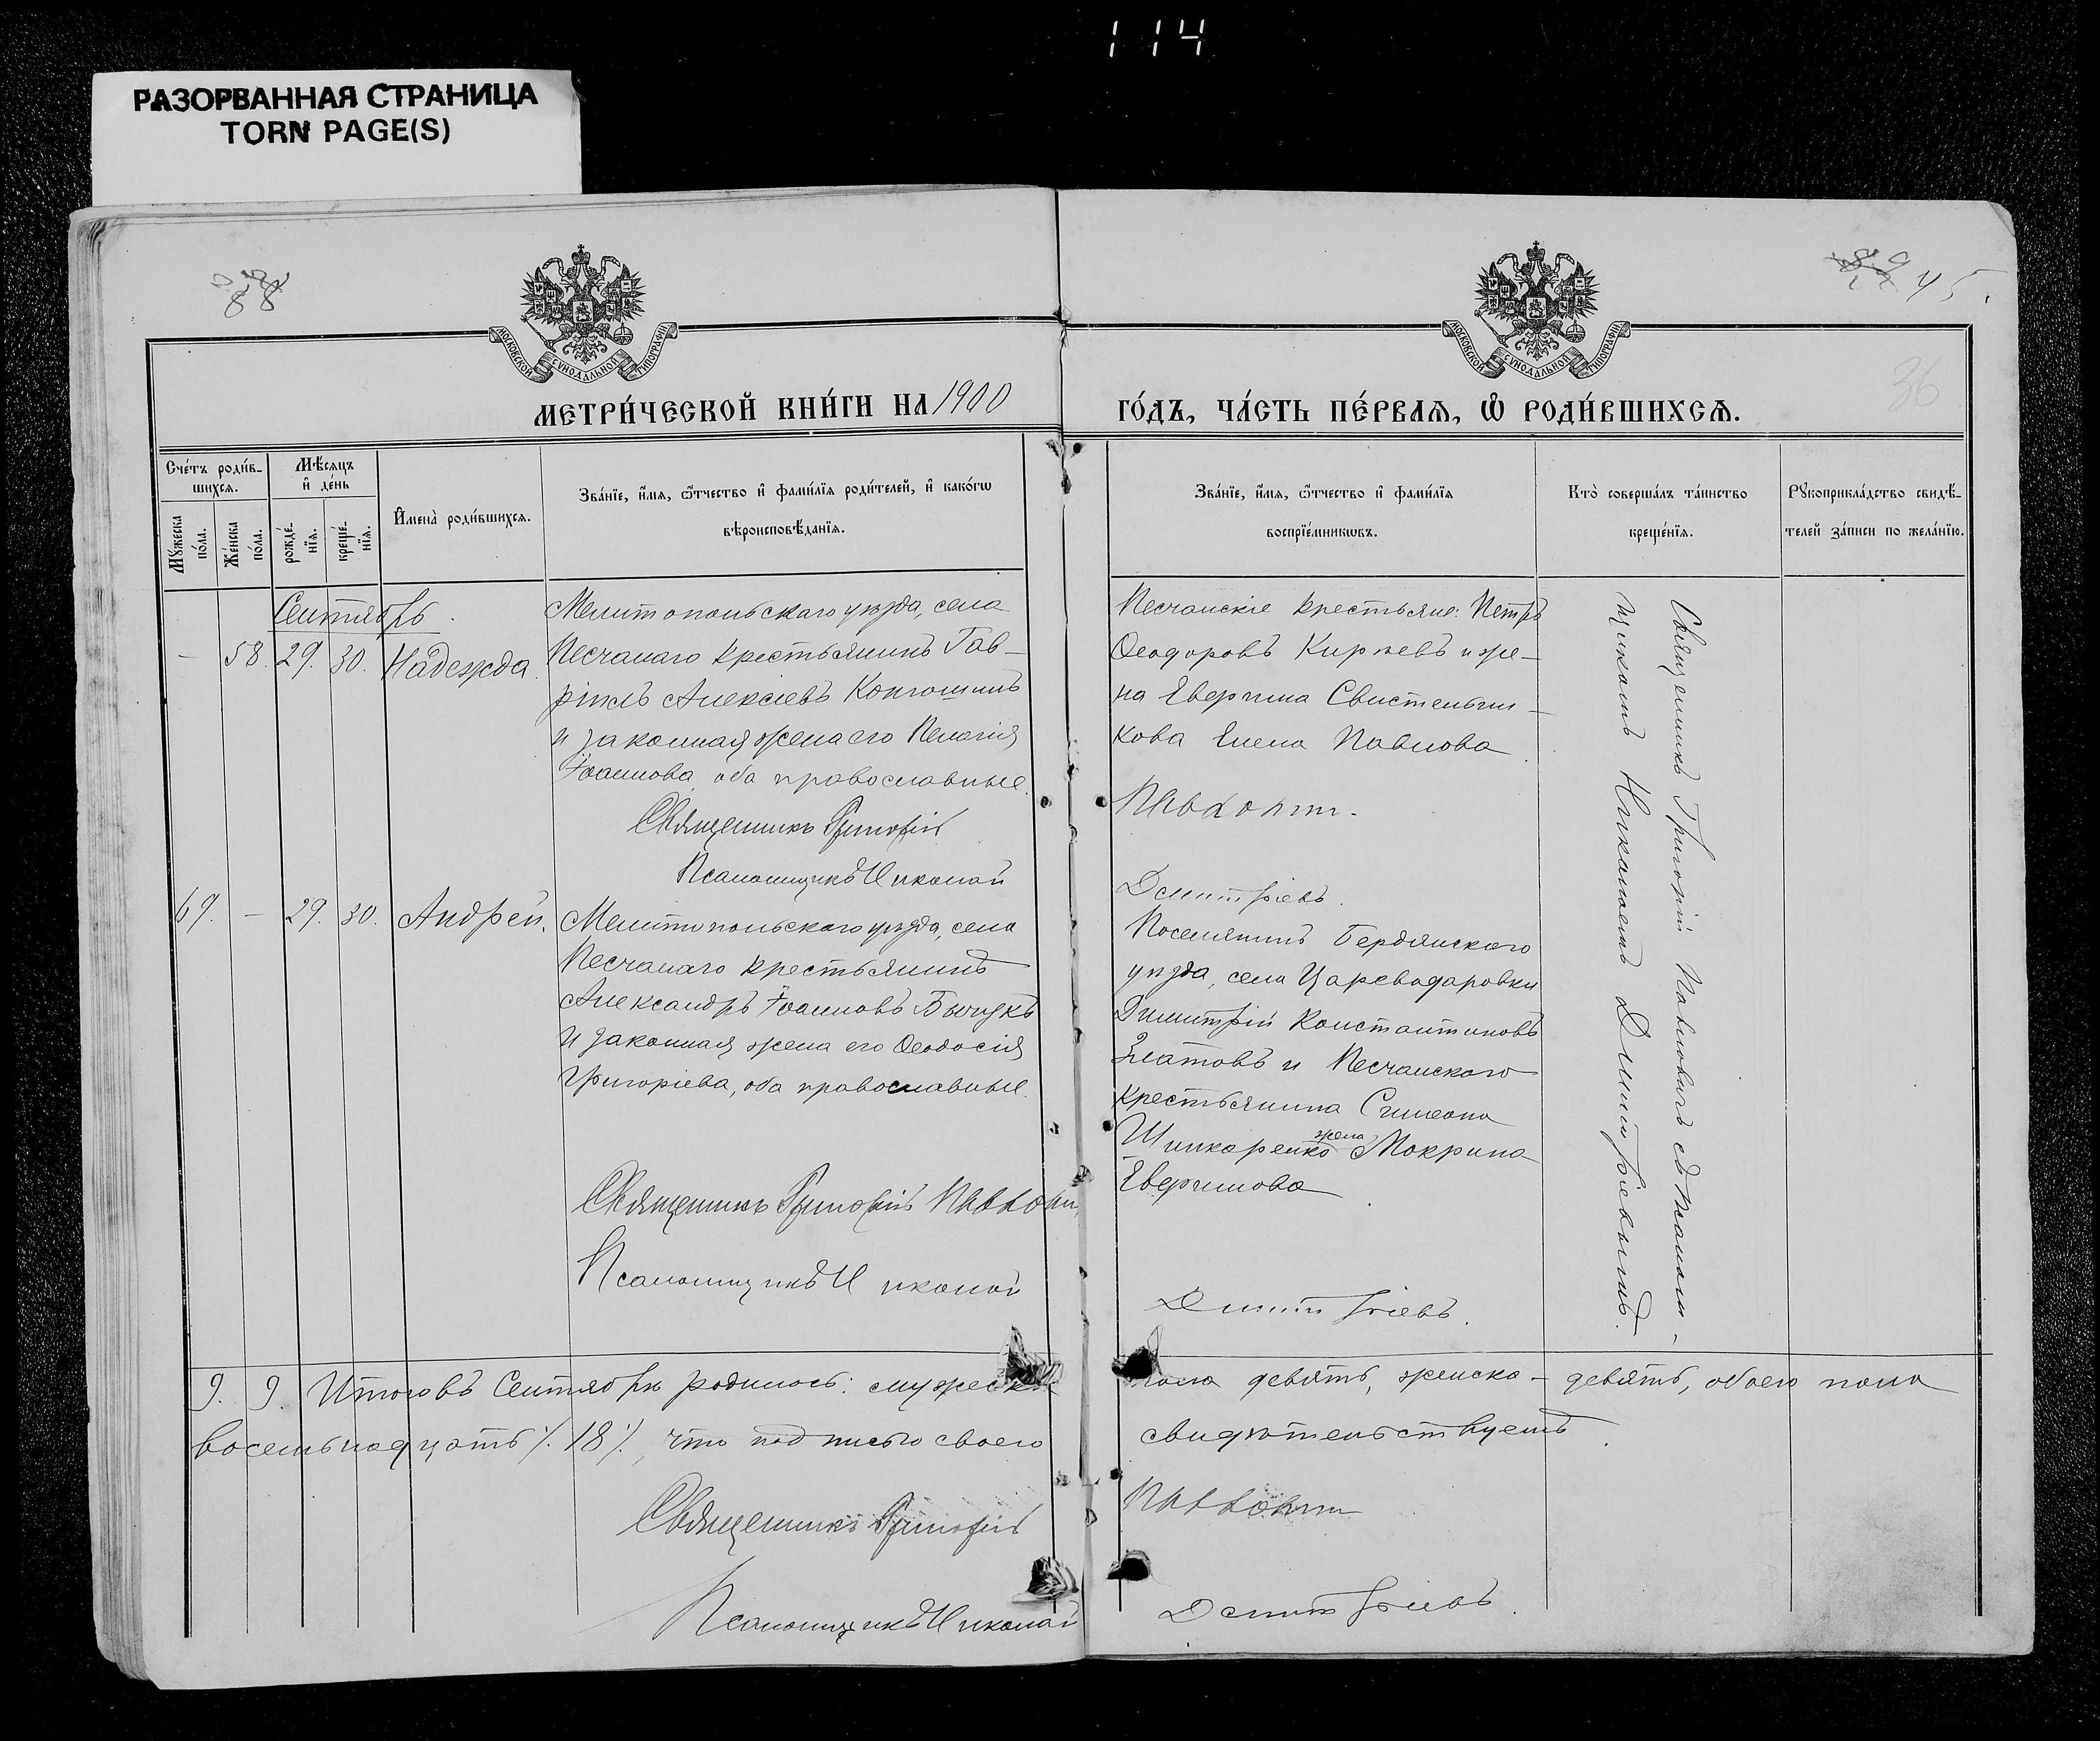 114
РАЗОРВАННАЯ СТРАНИЦА
TORN PAGE(S)
88
89 45.
36
МОСКОВСКОЙ СѴНОДАЛЬНОЙ ТИПОГРАФІИ
МОСКОВСКОЙ СѴНОДАЛЬНОЙ ТИПОГРАФІИ
МЕТРИ́ЧЕСКОЙ КНИ́ГИ НА 1900
ГО́ДЪ, ЧА́СТЬ ПЕ́РВАѦ, Ѿ РОДИ́ВШИХСѦ.
Сче́тъ роди́в-
шихсѧ.
Мꙋ́жеска по́ла.
Же́нска по́ла.
Мѣ́сѧцъ
и҆ де́нь
рожде́-
нїѧ.
креще́-
нїѧ.
И҆мена̀ роди́вшихсѧ.
Зва́нїе, и҆́мѧ, ѻ҆́тчество и҆ фами́лїѧ роди́телей, и҆ како́гѡ
вѣроисповѣ́данїѧ.
Зва́нїе, и҆́мѧ, ѻ҆́тчество и҆ фами́лїѧ
воспрїе́мникѡвъ.
Кто̀ соверша́лъ та́инство
креще́нїѧ.
Рꙋкоприкла́дство свидѣ́-
телей за́писи по жела́нїю.
Сентябрь
— 58. 29. 30. Надежда.
Мелитопольскаго уѣзда, села
Песчанаго крестьянинъ Гав-
ріилъ Алексіевъ Коптошинъ
и законная жена его Пелагія
Іоаннова, оба православные.
Священникъ Григорій
Псаломщикъ Николай
Песчанскіе крестьяне: Петръ
Ѳеодоровъ Киряевъ и же-
на Евѳимиа Свистельни-
кова Елена Павлова.
Павловичъ.
Дмитріевъ.
69. — 29. 30. Андрей.
Мелитопольскаго уѣзда, села
Песчанаго крестьянинъ
Александръ Іоанновъ Бычукъ
и законная жена его Ѳеодосія
Григоріева, оба православные.
Священникъ Григорій Павлович,
Псаломщикъ Николай
Поселянинъ Бердянскаго
уѣзда, села Цареводаровки
Димитрій Константиновъ
Златовъ и Песчанскаго
крестьянина Симеона
Шинкаренко жена Мокрина
Евѳимова.
Дмитріевъ.
Священникъ Григорій Павловичъ съ псалом-
щикомъ Николаемъ Дмитріевымъ.
9. 9. Итого въ Сентябрѣ родилось: мужеска
пола девять, женска - девять, обоего пола
восемьнадцать ./. 18 ./., что подписью своею
свидѣтельствуемъ.
Священникъ Григорій
Павловичъ
Псаломщикъ Николай
Дмитріевъ.